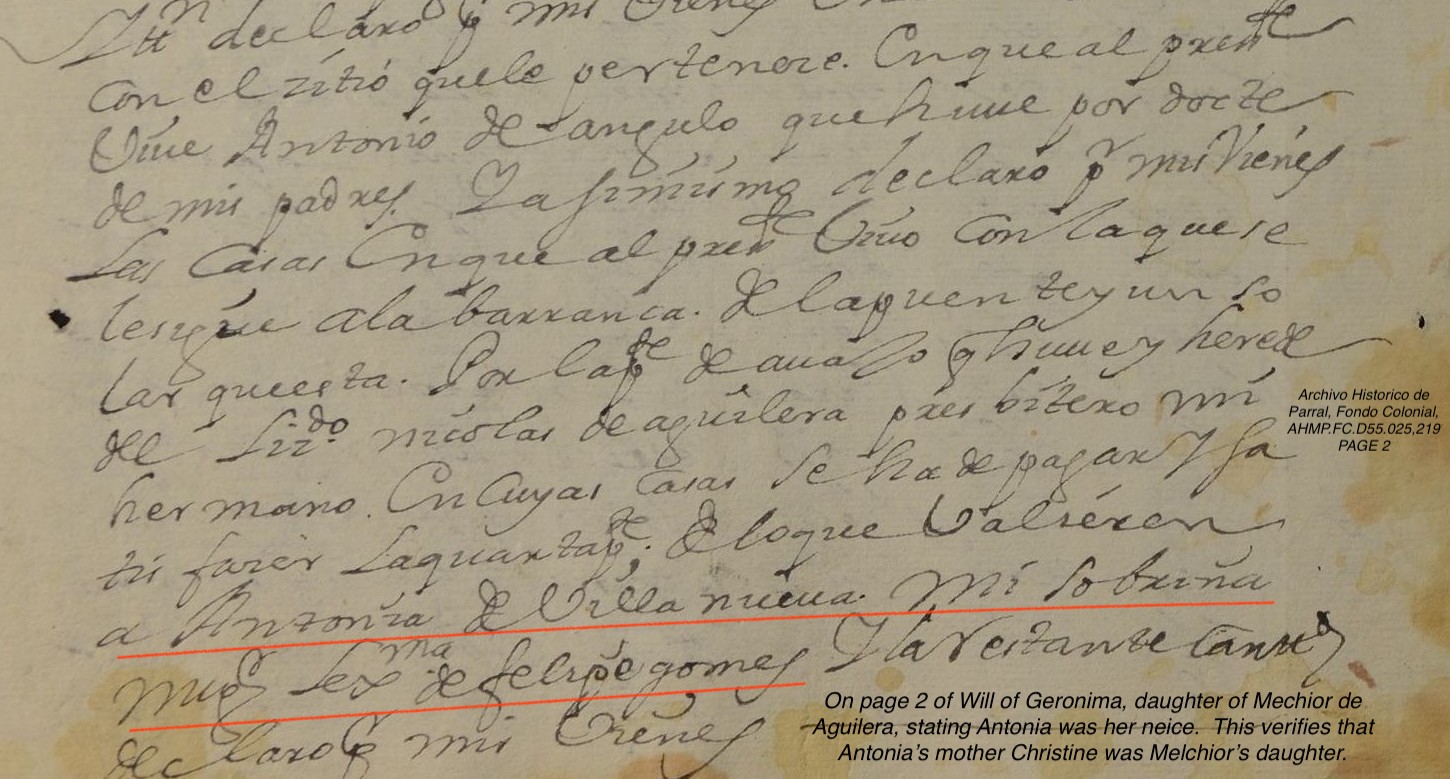 Ytn declaro p mis vienes
Con el zitio quele pertenece. En que al presste
Vive Antonio de angulo que huve por docte
de mis padres. Y asimismo declaro pr mis vienes
Las Casas En que al presste Vivo Con la que se
le sigue a la barranca. de la puente y un so
lar que esta. Por la pte de avaxo q huve y herede
del Lizdo nicolas de aguilera presbitero mi
hermano. En Cuyas Casas se ha de pagar Y sa
tis fazer La quarta pte. de lo que Valieren
a Antonia de Villa nueva. Mi sobrina
muger Lexma de felipe gomes Y la restante cantd
declaro p mis vienes
Archivo Historico de
Parral, Fondo Colonial,
AHMP.FC.D55.025,219
PAGE 2
On page 2 of Will of Geronima, daughter of Mechior de
Aguilera, stating Antonia was her neice. This verifies that
Antonia's mother Christine was Melchior's daughter.